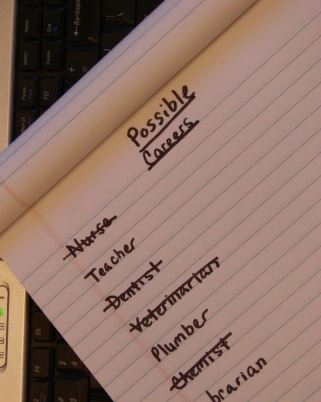 Possible
Careers
Nurse
Teacher
Dentist
Veterinarian
Plumber
Chemist
brarian